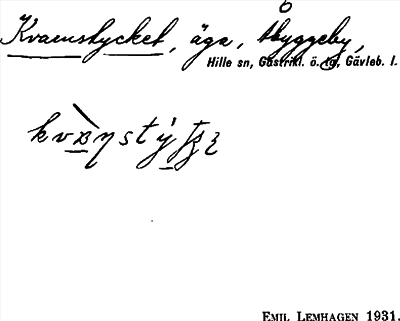 Kvarnstycket, äga, Åbyggeby,
Hille sn, Gästrikl. ö. tg, Gävleb. l.
EMIL LEMHAGEN 1931.